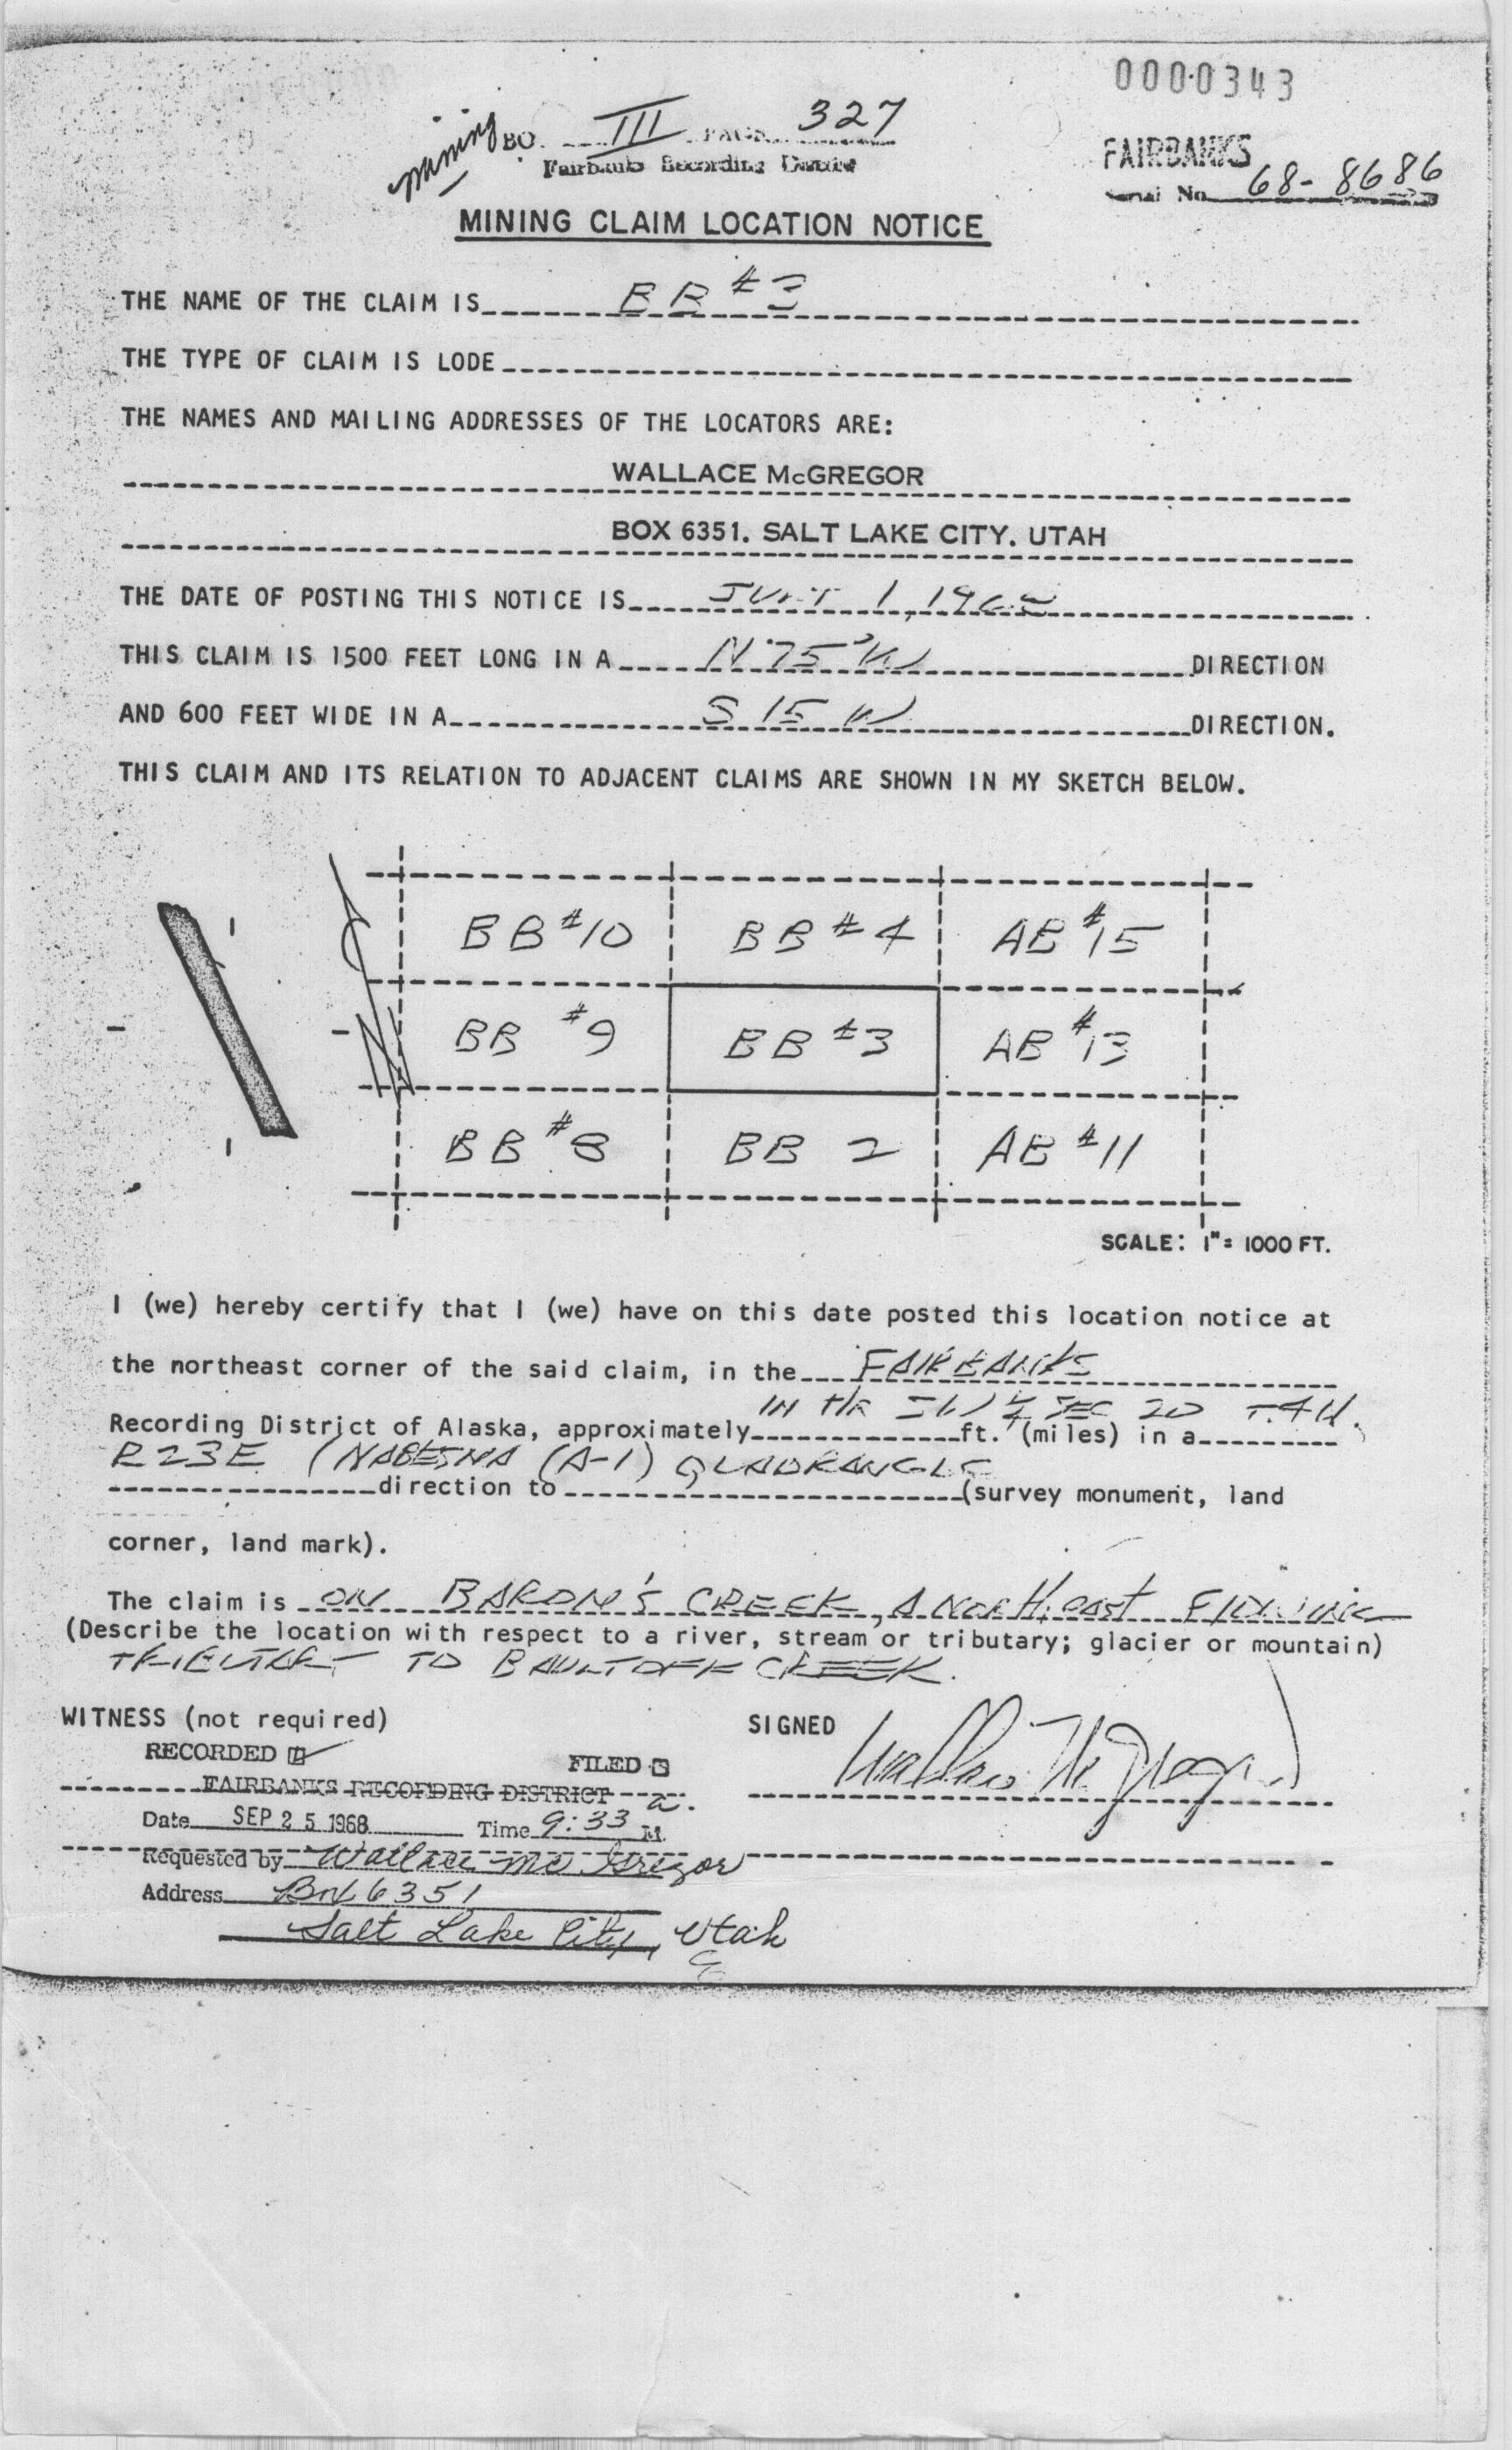 0000343
Mining BO. III PAGE 327
Fairbanks Recording District
FAIRBANKS
Serial No. 68-8686
MINING CLAIM LOCATION NOTICE
THE NAME OF THE CLAIM IS BB #3
THE TYPE OF CLAIM IS LODE
THE NAMES AND MAILING ADDRESSES OF THE LOCATORS ARE:
WALLACE McGREGOR
BOX 6351. SALT LAKE CITY. UTAH
THE DATE OF POSTING THIS NOTICE IS 1, 196
THIS CLAIM IS 1500 FEET LONG IN A N 75° W DIRECTION
AND 600 FEET WIDE IN A S 15 W DIRECTION.
THIS CLAIM AND ITS RELATION TO ADJACENT CLAIMS ARE SHOWN IN MY SKETCH BELOW.
BB #10 BB #4 AB #15
N BB #9 BB #3 AB #13
BB #8 BB 2 AB #11
SCALE: 1"= 1000 FT.
I (we) hereby certify that I (we) have on this date posted this location notice at
the northeast corner of the said claim, in the FAIRBANKS
IN THE SW 1/4 SEC 20 T.4N.
Recording District of Alaska, approximately ft. (miles) in a
R23E (NABESNA (A-1) QUADRANGLE
direction to (survey monument, land
corner, land mark).
The claim is ON BARON'S CREEK, A NORTHeast FLOWING
(Describe the location with respect to a river, stream or tributary; glacier or mountain)
TRIBUTARY TO BAULTOFF CREEK.
WITNESS (not required) SIGNED Wallace McGregor
RECORDED FILED
FAIRBANKS RECORDING DISTRICT
Date SEP 25 1968 Time 9:33 a. M.
Requested by Wallace McGregor
Address Box 6351
Salt Lake City, Utah